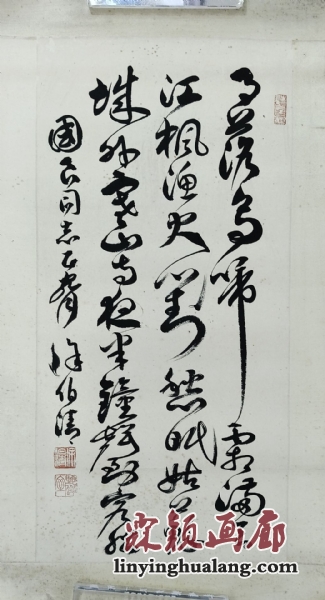 月落烏啼霜滿天
江楓漁火對愁眠姑蘇
城外寒山寺夜半鐘聲到客船
國民同志正腕 徐伯清
霖颖画廊
linyinghualang.com